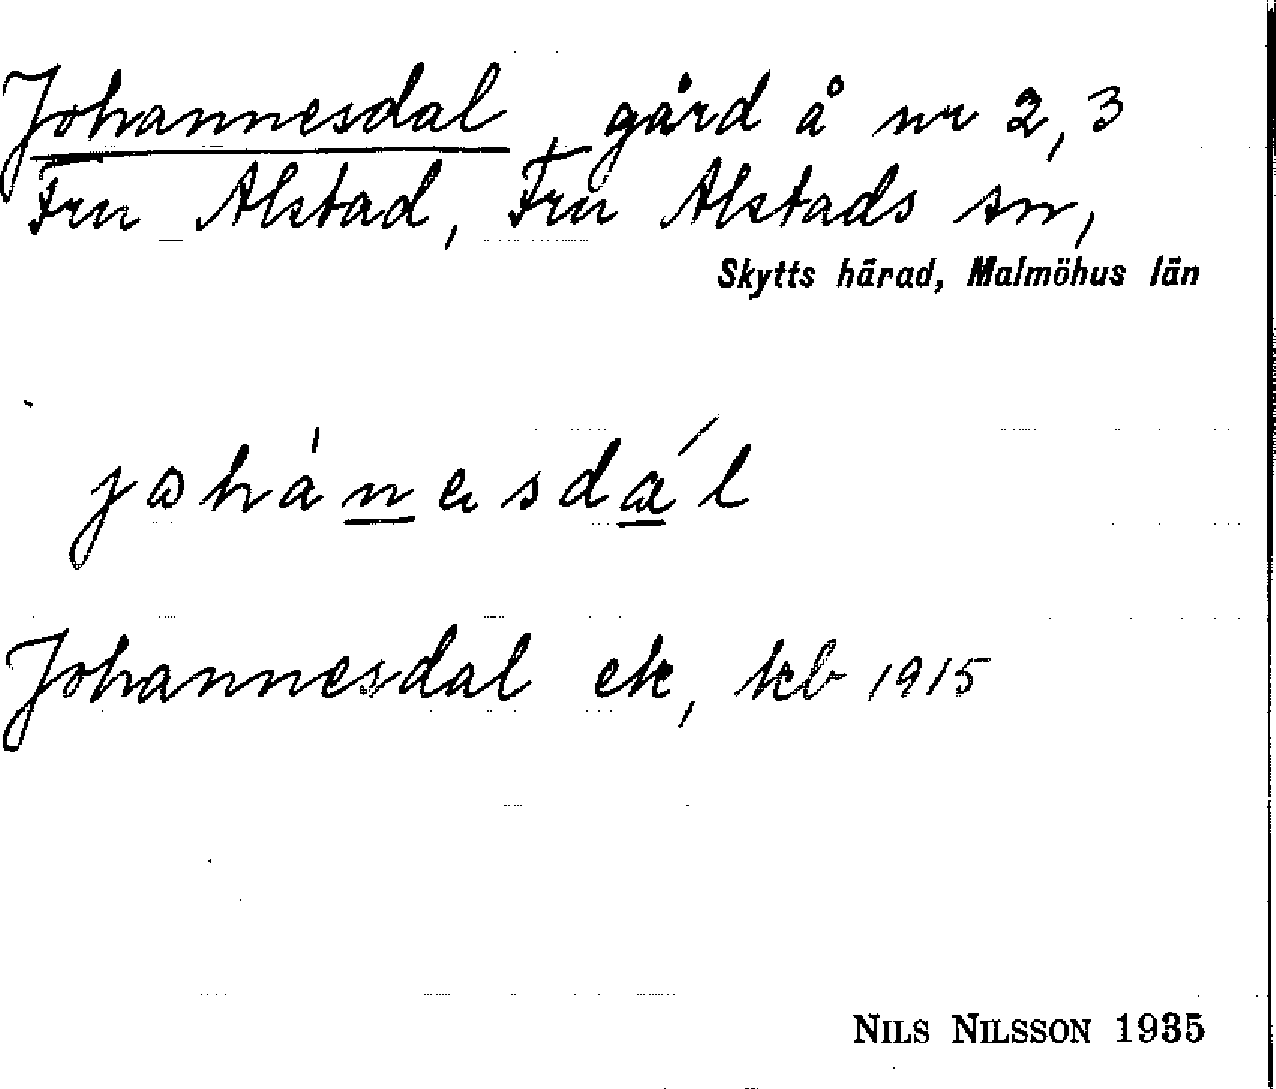 Johannesdal, gård å nr 2, 3
Fru Alstad, Fru Alstads sn,
Skytts härad, Malmöhus län
johànesdál
Johannesdal ek, kb 1915
NILS NILSSON 1935